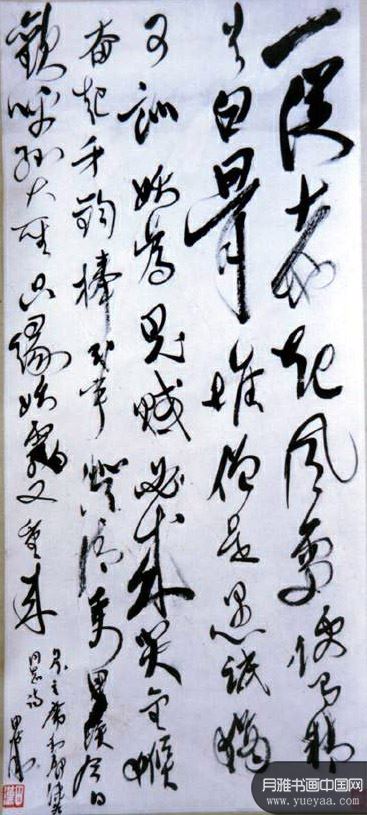 一從大地起风雷便有精
生白骨堆僧是愚氓猶
可訓妖为鬼蜮必成灾金猴
奋起千鈞棒玉宇澄清萬里埃今日
歡呼孙大聖只缘妖霧又重来
主席和郭沫若
同志诗
月雅书画中国网
www.yueyaa.com